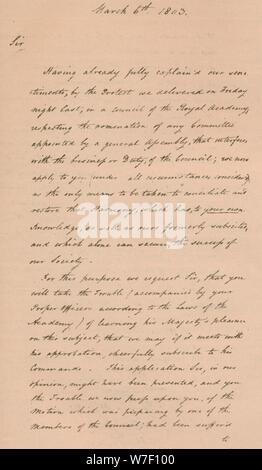 March 6th 1803.
Sir
Having already fully explain'd our sen-
timents, by the Protest we delivered on Friday
night last, in a Council of the Royal Academy,
respecting the nomination of any Committee
appointed by a general Assembly, that interferes
with the business or Duty, of the Council; we now
apply to you under all circumstances considering
as the only means to be taken to conciliate and
restore that Harmony, which has, to your own
knowledge as well as ours formerly subsisted,
and which alone can secure the success of
our Society.
For this purpose we request Sir, that you
will take the Trouble (accompanied by your
Proper Officer according to the Laws of the
Academy) of learning his Majesty's pleasure
on this subject, that we may if it meets with
his approbation, chearfully subscribe to his
Commands. This application Sir, in our
opinion, might have been prevented, and you
the Trouble we now press upon you, if the
Motion which was preparing by one of the
members of the Council, had been suffer'd
to
alamy
Image ID: W7F100
www.alamy.com